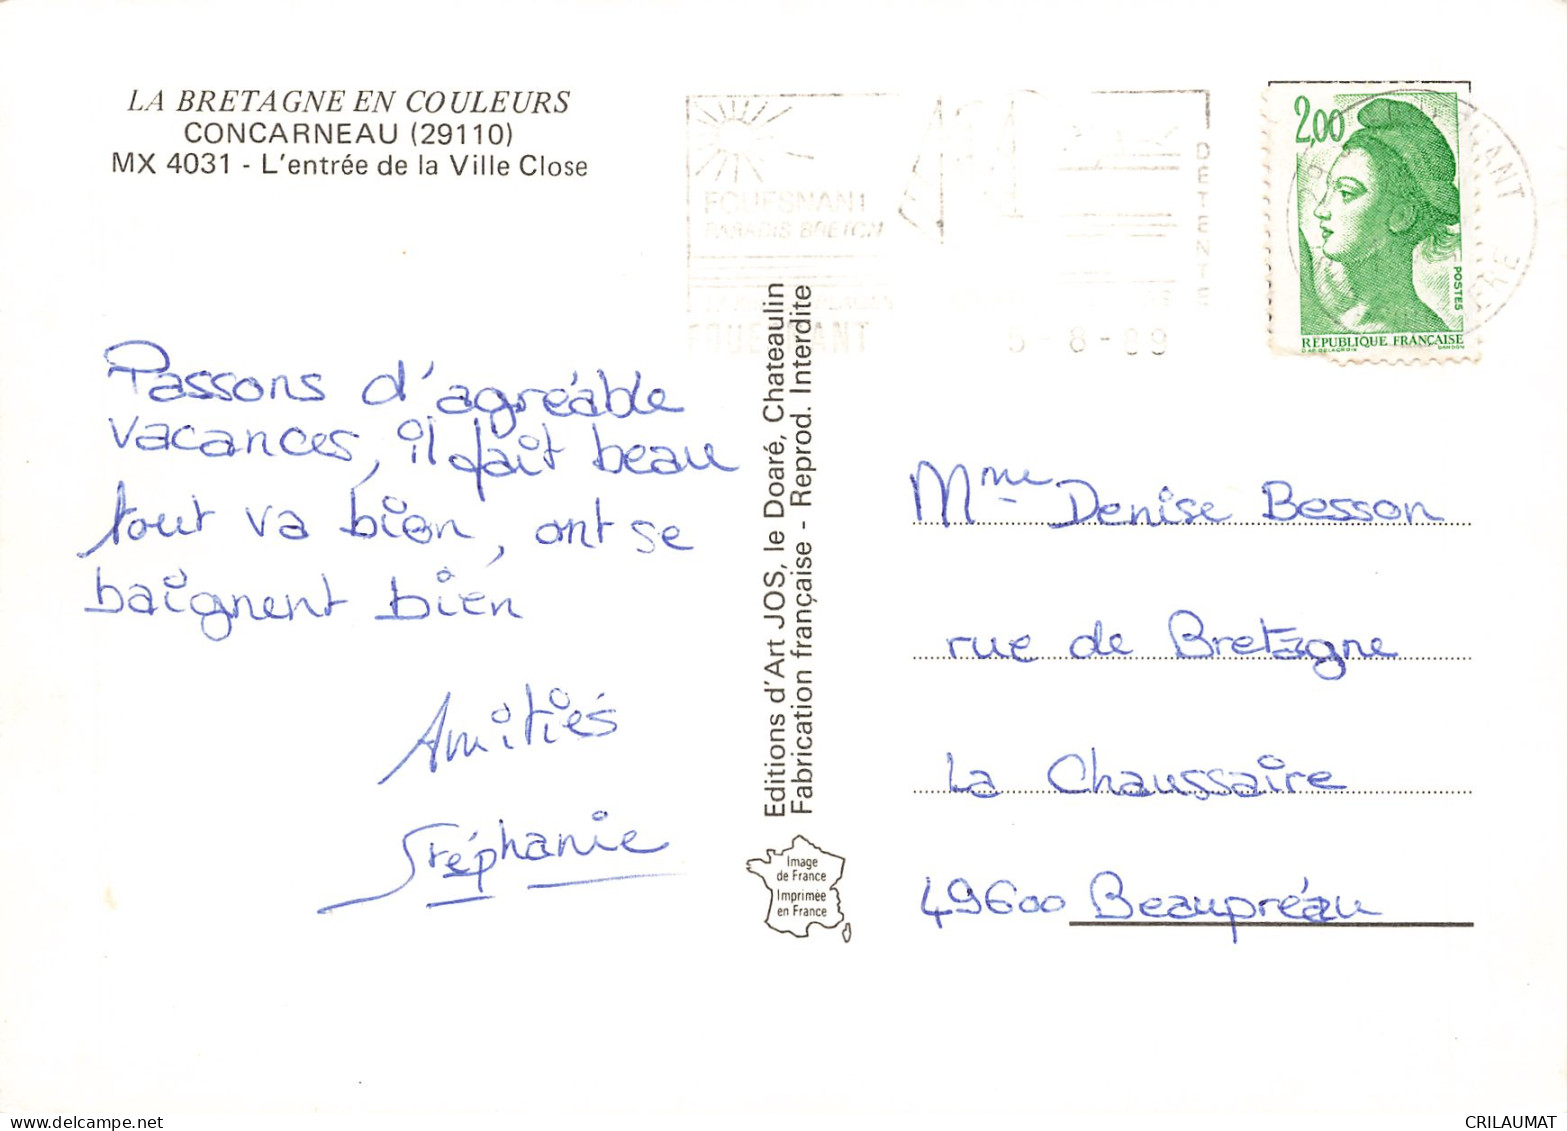 LA BRETAGNE EN COULEURS
CONCARNEAU (29110)
MX 4031 - L'entrée de la Ville Close
Passons d'agréable
vacances, il fait beau
tout va bien, ont se
baignent bien
Amitiés
Stéphanie
Editions d'Art JOS, le Doaré, Chateaulin
Fabrication française - Reprod. Interdite
Image
de France
Imprimée
en France
FOUESNANT
PARADIS BRETON
DETENTE
FOUESNANT
8 - 89
2,00
POSTES
RÉPUBLIQUE FRANÇAISE
D'AP. DELACROIX GANDON
Mme Denise Besson
rue de Bretagne
La Chaussaire
49600 Beaupréau
www.delcampe.net
CRILAUMAT